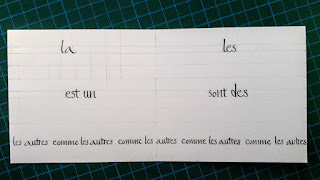 la les
est un sont des
les autres comme les autres comme les autres comme les autres comme les autres